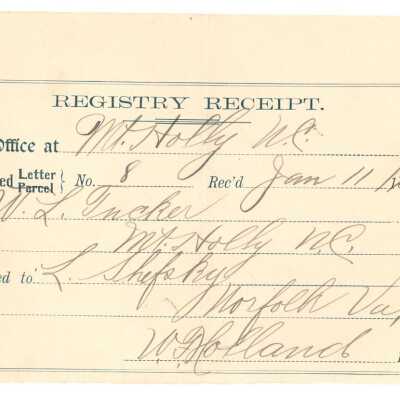 REGISTRY RECEIPT.
Office at Mt. Holly N.C.
ed Letter Parcel } No. 8 Rec'd Jan 11
W. L. Tucker
Mt. Holly N.C.
ed to L. Shefsky
Norfolk Va,
W. Holland